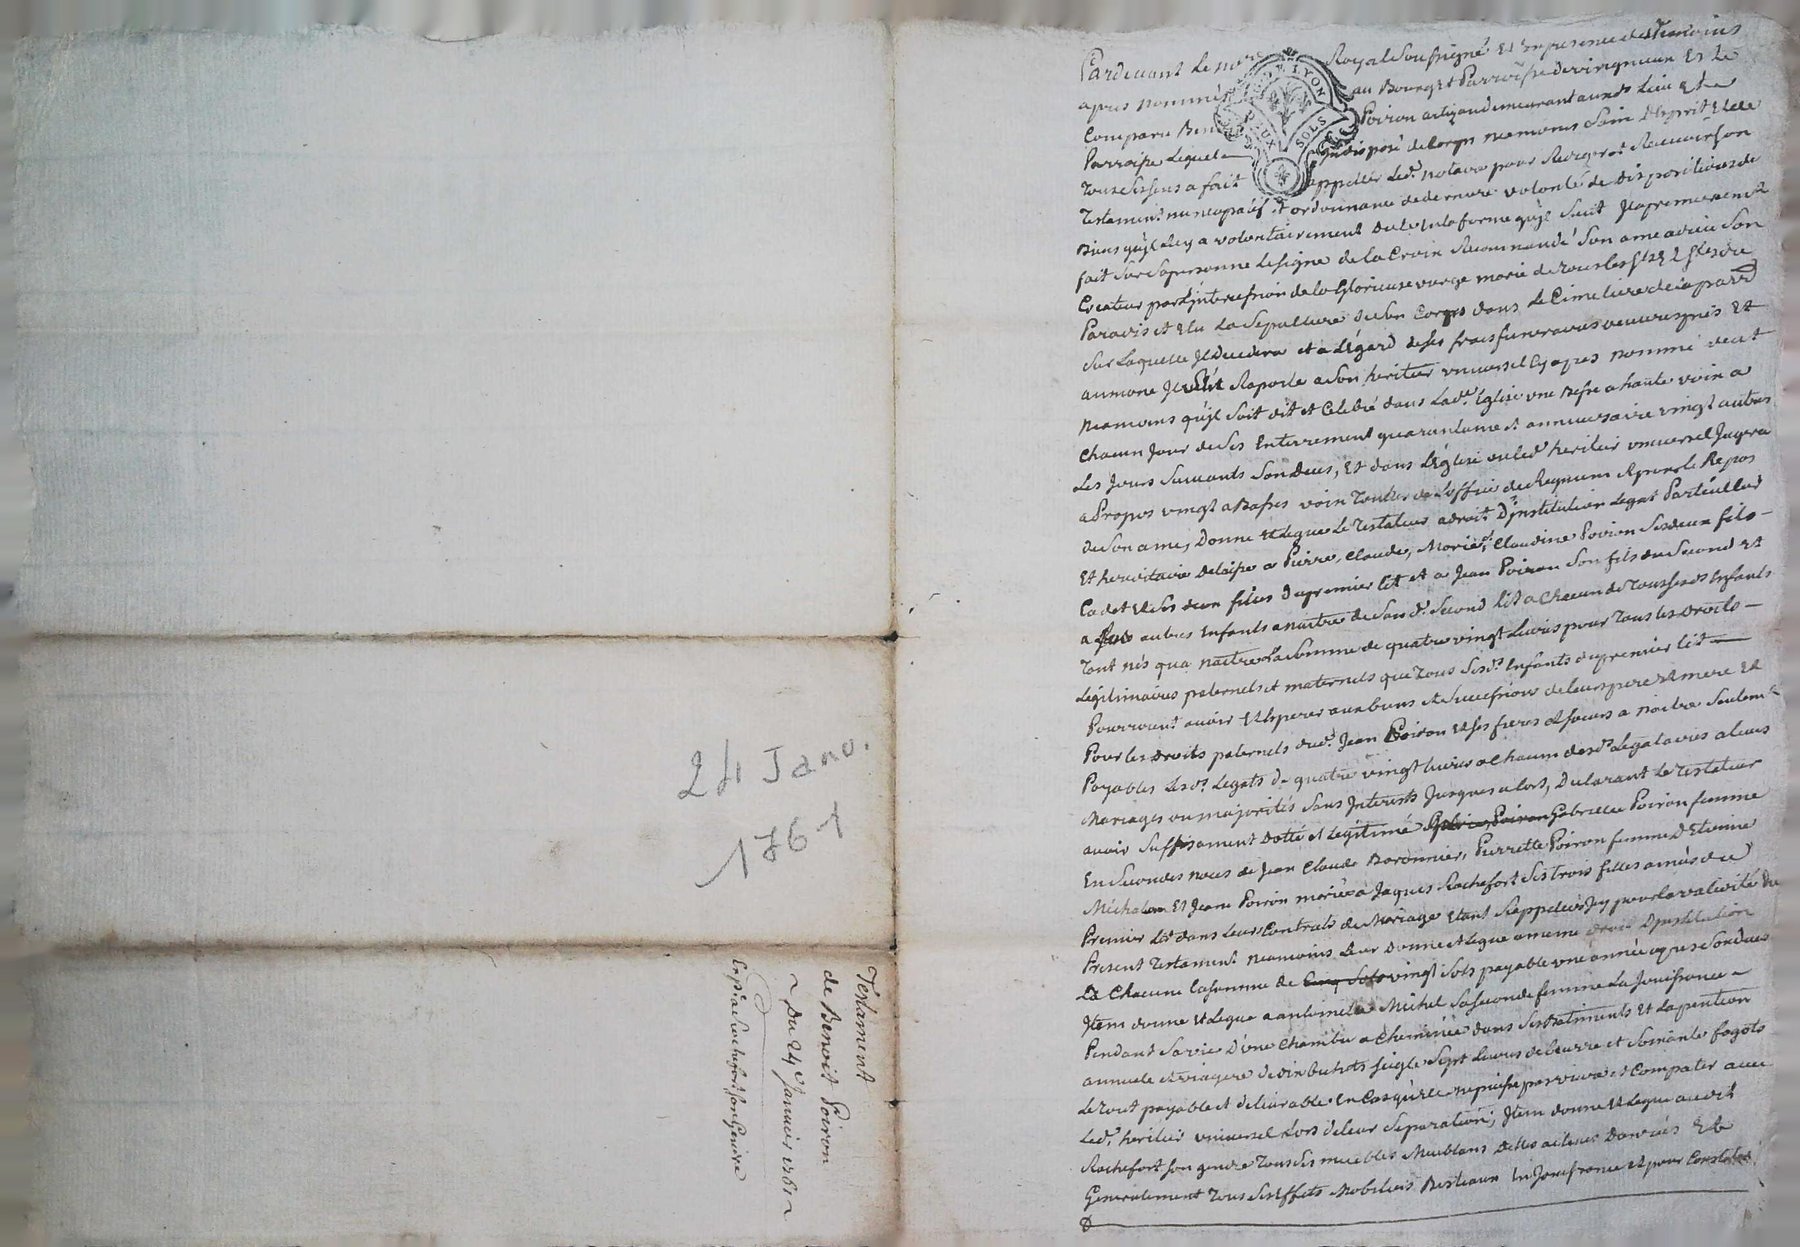 24 Janv.
1761
Testament
de Benoit Poiron
Du 24e Janvier 1761
Expédié a Rochefort son Gendre
DE LYON
SOLS
Pardevant le no.re Royal Soussigné Et En presence des Temoins
apres nommés au Bourg et Parroisse de virigneux Est
Comparu Ben Poiron artizan demeurant auxds Lieu Et
Parroisse Lequel Indisposé de Corps neamoins Sain D'Esprit Et de
Tous ses sens a fait appeller led. notaire pour Recevoir son
Testament nuncupatif et ordonnance de derniere volonté de disposition de
Biens qu'il a volontairement En la forme qu'il Suit Premierement
fait Sur Sa personne Le signe de la Croix Recommandé Son ame a dieu Son
Createur par L'intercession de la Glorieuse vierge marie de tous les Sts Et Stes de
Paradis et Elu La Sepulture de Son Corps dans Le Cimetiere de la parr.
Sur Laquelle Il decedera et a L'égard de ses frais funeraires Et
aumone Il S'En Raporte a Son heritier universel Cy apres nommé veut
neamoins qu'il Soit dit et Celebré dans Lad. Église une Messe a haute voix a
Chacun Jour de Ses Enterrement quarantaine et anniversaire vingt autres
Les Jours Suivants Son Deces, Et dans L'Église ou led heritier universel Jugera
a Propos vingt Messes voix L'office de Requiem Repos
de Son ame, Donne Et Legue Le Testateur a droit D'institution Legat Particulier
Et hereditaire delaisse a Pierre, Claude, Marie, Claudine Poiron Ses deux fils
Cadet Et Ses deux filles du premier Lit et a Jean Poiron Son fils du Second Et
a Ses autres Enfants a naitre de Son d. Second Lit a Chacun de Tous Enfants
Tant nés qua naitre La Somme de quatre vingt Livres pour Tous Les Droits
Légitimaires paternels et maternels que Tous Sesd. Enfants du premier Lit
Pourroient avoir Et Esperer aux biens Et Successions de leurs pere Et mere Et
Pour les Droits paternels dud. Jean Poiron Et Ses freres Et Soeurs a naitre Seulemt
Payables Lesd. Legats de quatre vingt Livres a Chacun desd Legataires a Leurs
Mariages ou majorités Sans Interests Jusques alors, Declarant Le Testateur
avoir Suffisament Dotté et Legitimé Gabrielle Poiron femme
En Secondes noces de Jean Claude Baronnier, Pierrette Poiron femme D'Etienne
Michalon Et Jeane Poiron mariée a Jaques Rochefort Ses Trois filles ainées du
Premier Lit dans Leurs Contrats de Mariage Etant Rappellées Icy pour la validité du
Present Testament neamoins Leur donne et Legue a meme Droit D'institution
a Chacune La Somme de vingt Sols payable une année apres Son deces
Item donne Et Legue a antoinette Michel Sa Seconde femme La Jouissance
Pendant Sa vie D'une Chambre a Cheminée dans Ses Batiments Et La pention
annuele et viagere de dix bichets seigle Sept Livres de beurre et Soixante fagots
Le tout payable et delivrable En Cas qu'elle ne puisse pas vivre et Compatir avec
Led. heritier universel Lors de leur Separation; Item donne Et Legue aud
Rochefort Son gendre Tous Ses meubles Meublans Dettes actives Danrées Et
Generalement Tous Ses Effets Mobiliers Bestiaux En Jouissance Et pour